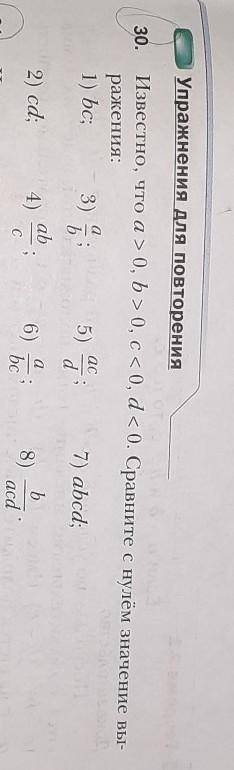 Упражнения для повторения
30. Известно, что a > 0, b > 0, c < 0, d < 0. Сравните с нулём значение вы-
ражения:
1) bc; 3) a/b; 5) ac/d; 7) abcd;
2) cd; 4) ab/c; 6) a/bc; 8) b/acd.